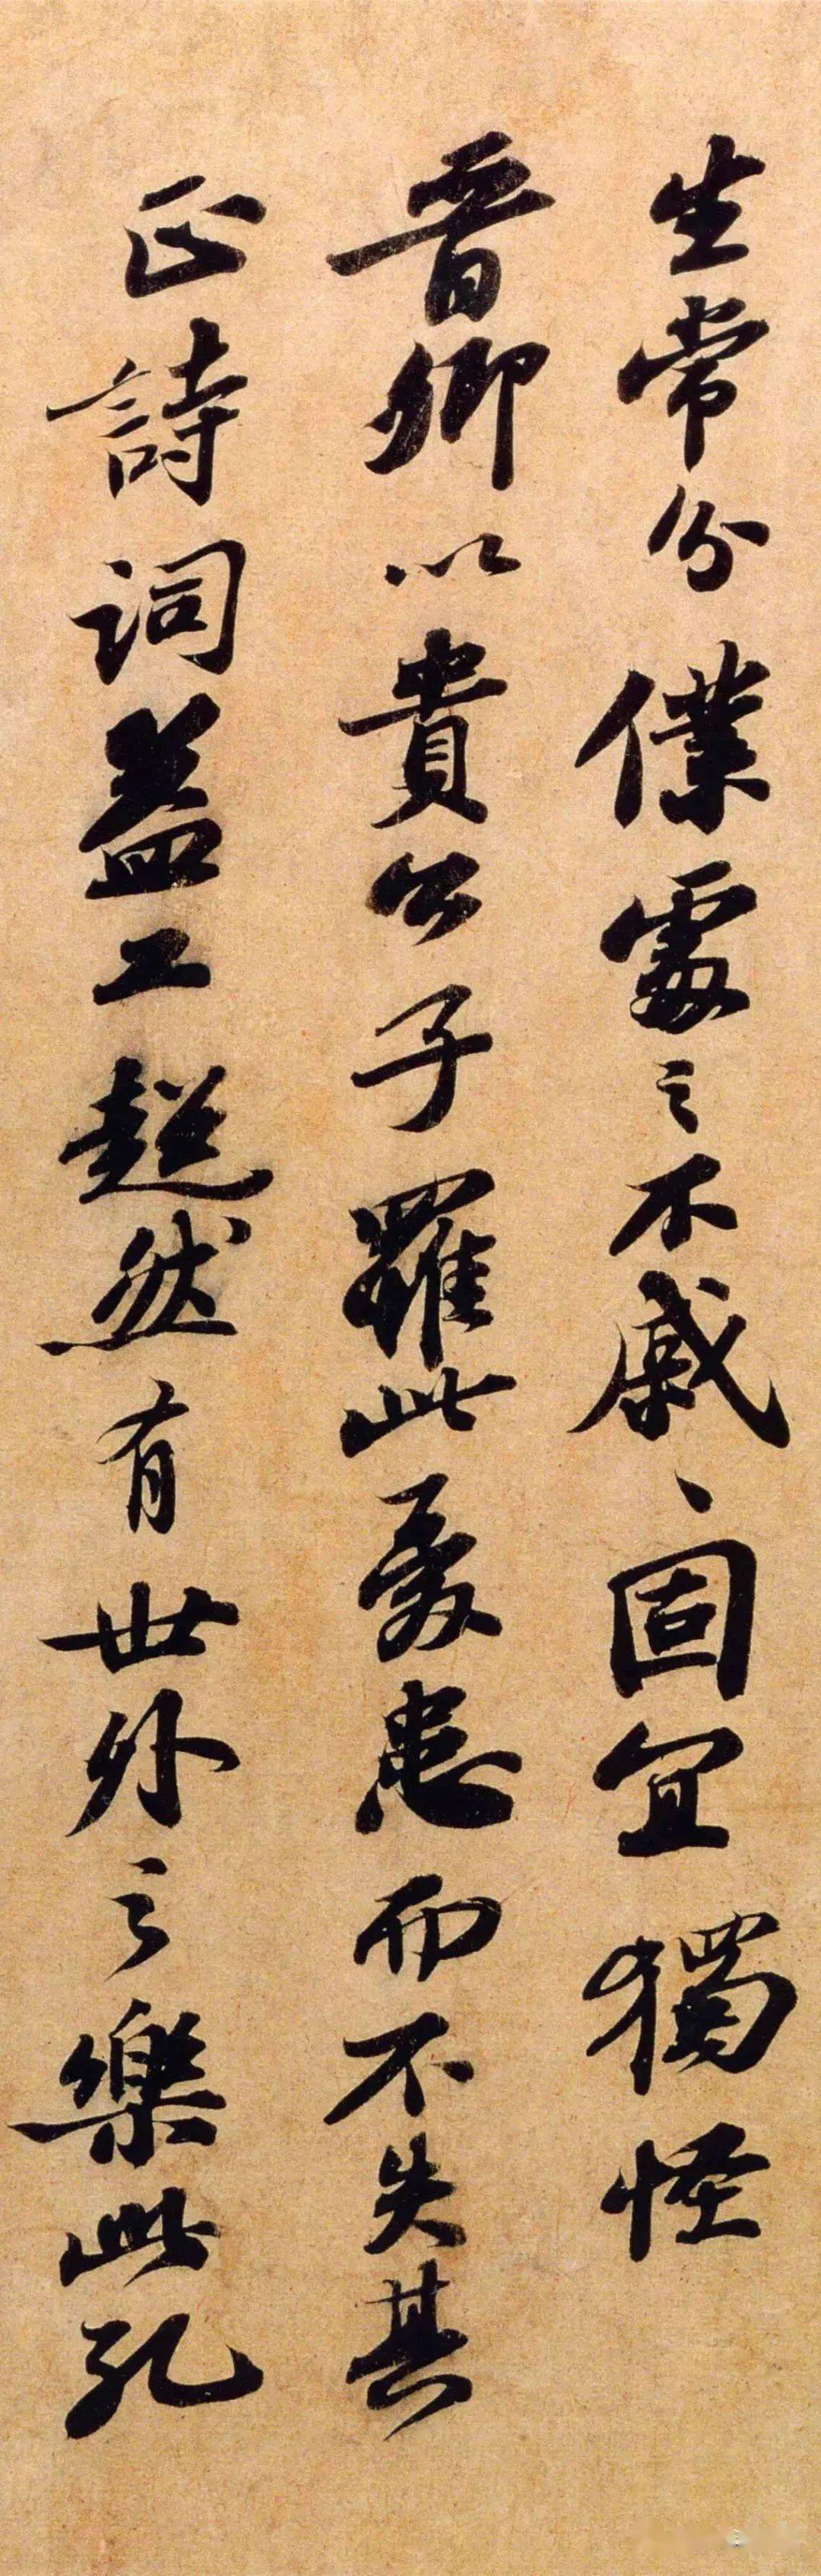 生常分僕處之不戚〻固宜獨怪
晉卿以貴公子罹此憂患而不失其
正詩詞益工超然有世外之樂此孔